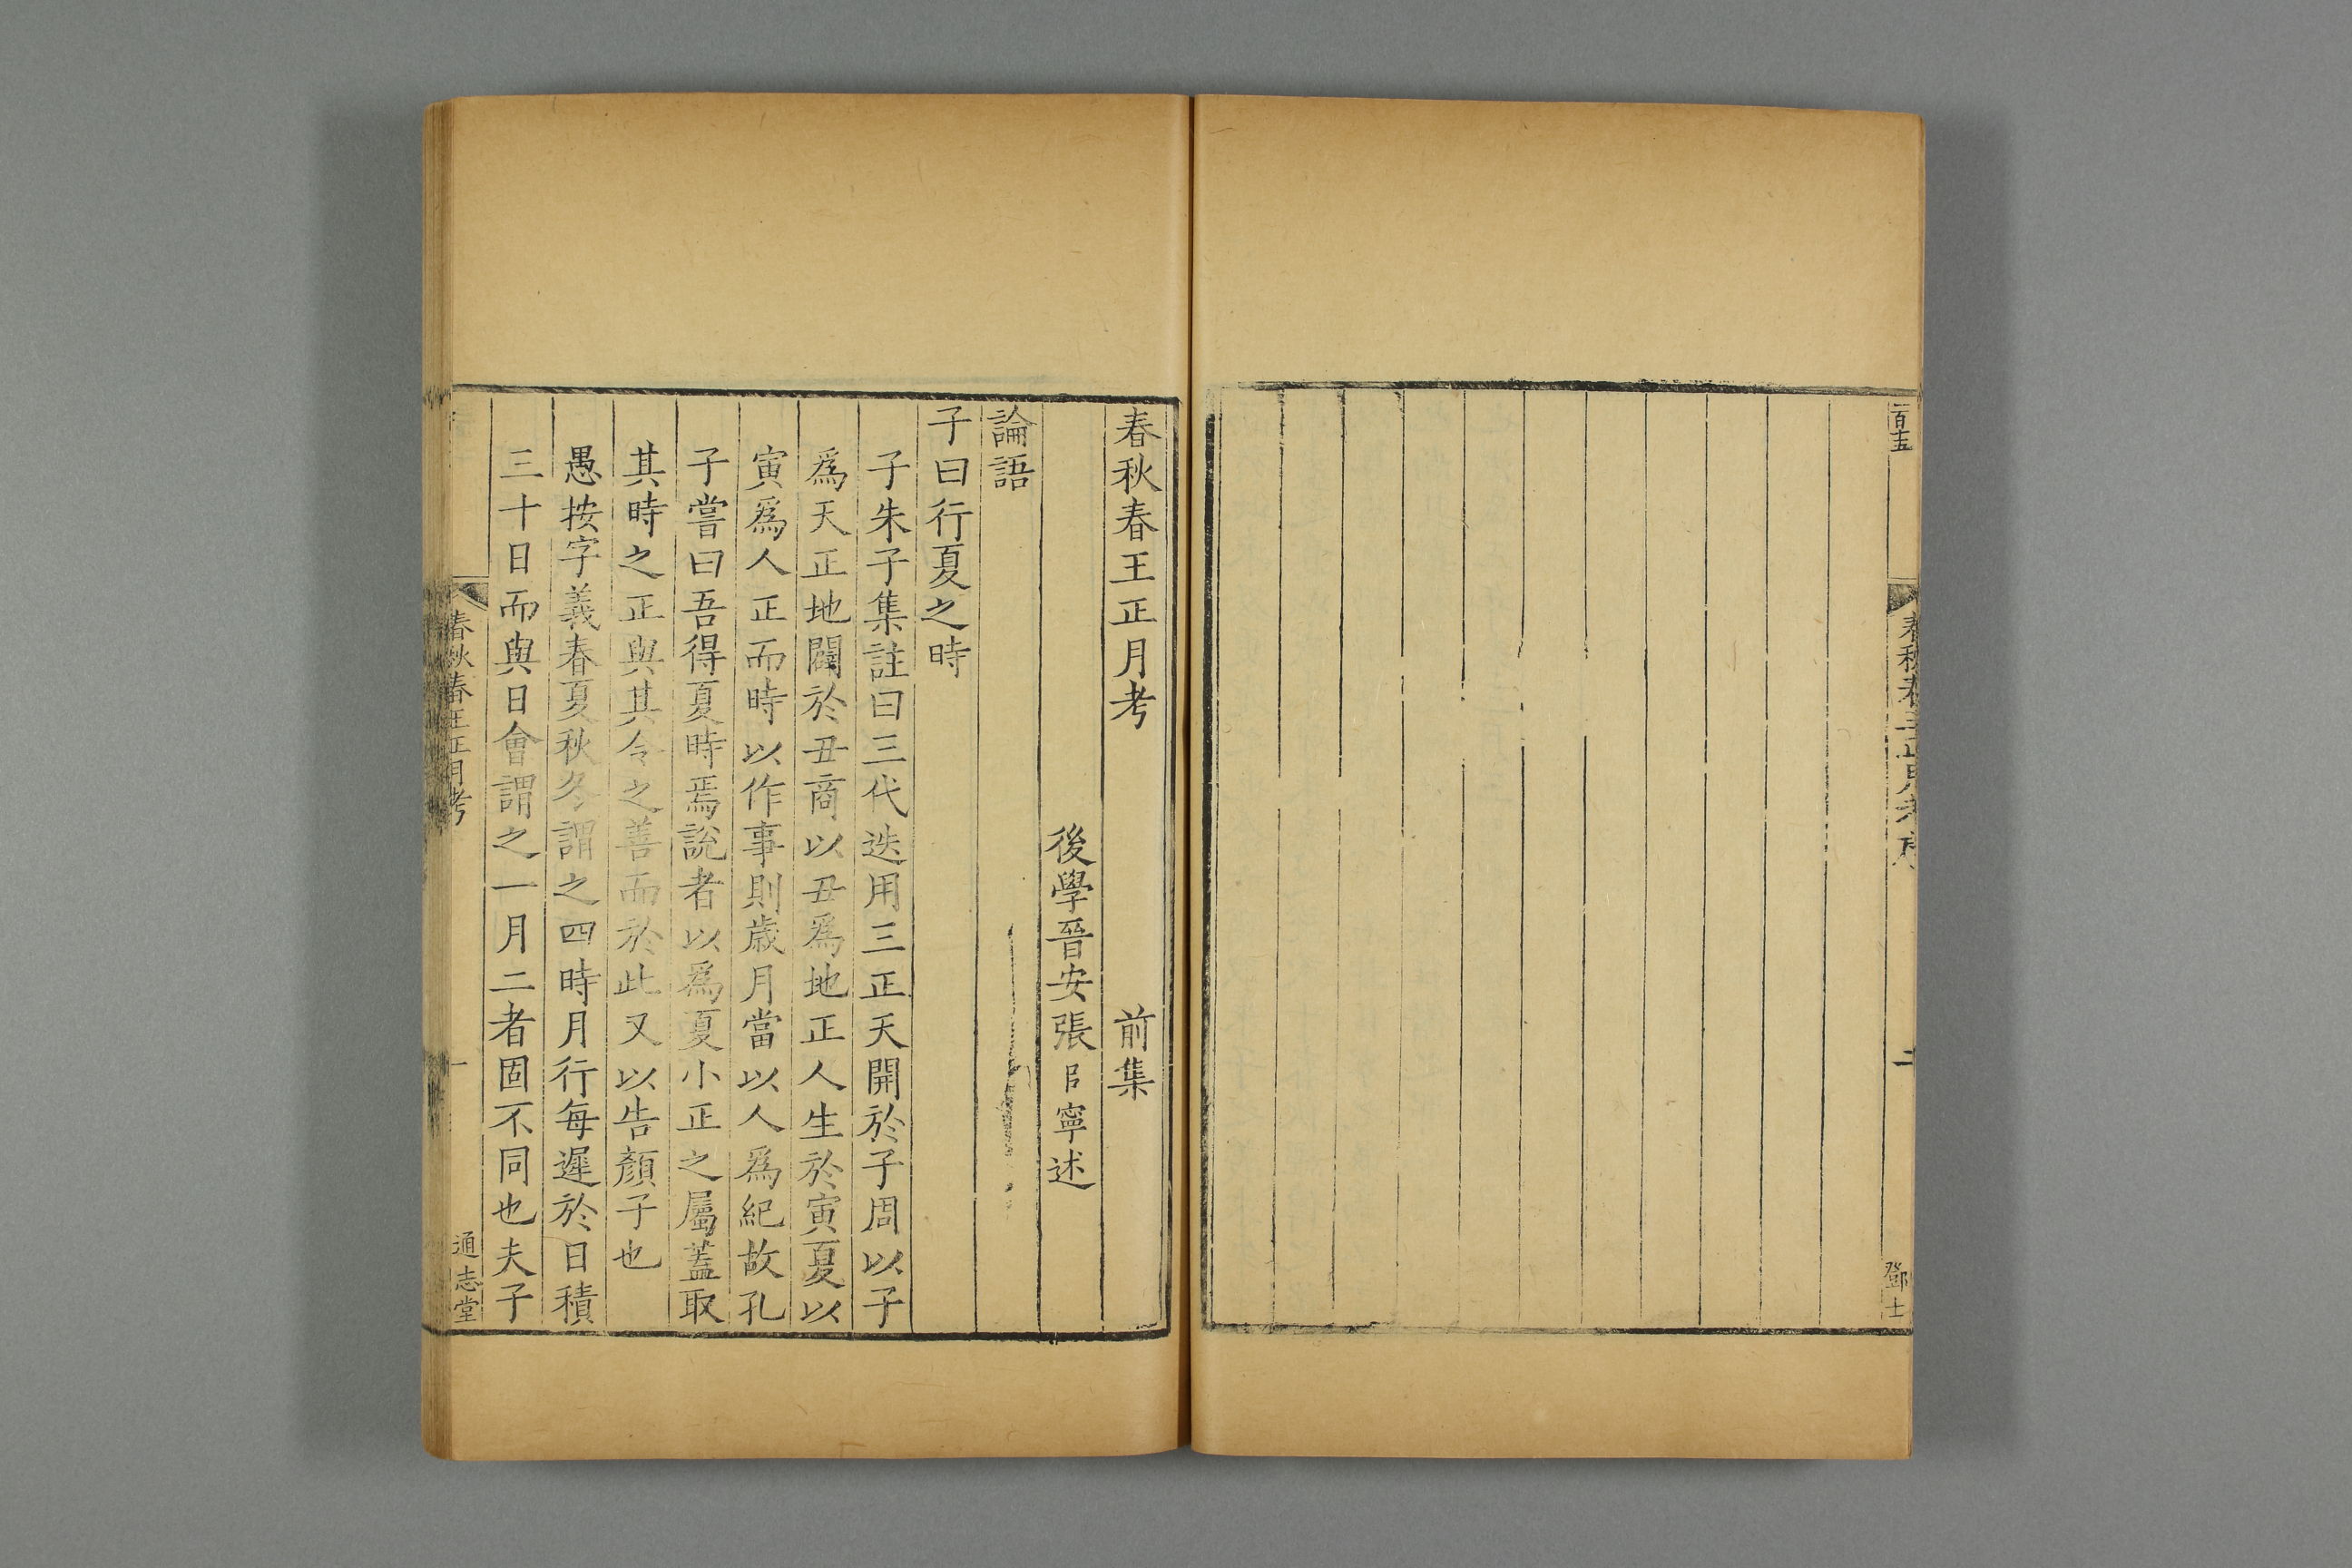 百十五
春秋春王正月考序
二
鄧士
春秋春王正月考 前集
後學晉安張㠯寧述
論語
子曰行夏之時
子朱子集註曰三代迭用三正天開於子周以子
爲天正地闢於丑商以丑爲地正人生於寅夏以
寅爲人正而時以作事則歲月當以人爲紀故孔
子嘗曰吾得夏時焉說者以爲夏小正之屬蓋取
其時之正與其令之善而於此又以告顏子也
愚按字義春夏秋冬謂之四時月行每遲於日積
三十日而與日會謂之一月二者固不同也夫子
春秋春王正月考
一
通志堂